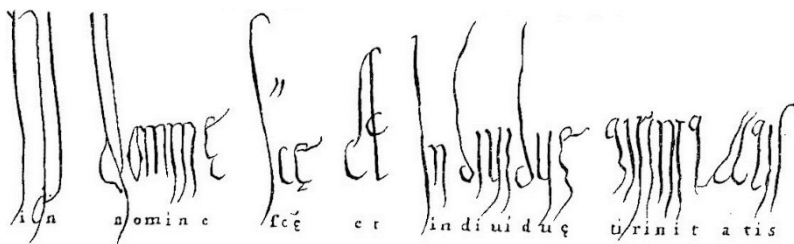 In nomine ſcę et indiuiduę tirinitatis
in nomine ſcę̃ et indiuiduę tirinitatis